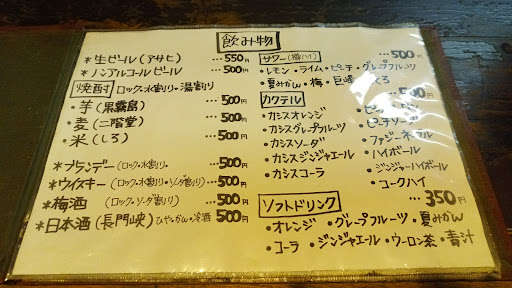 飲み物
*生ビール(アサヒ) …550円
*ノンアルコールビール …500円
焼酎 ロック・水割り・湯割り
・芋(黒霧島) 500円
・麦(二階堂) 500円
・米(しろ) 500円
*ブランデー(ロック・水割り・ …500円
*ウイスキー(ロック・水割り・ソーダ割り) …500円
*梅酒 (ロック・ソーダ割り) 500円
*日本酒(長門峡) ひや・かん・冷酒 500円
サワー(酎ハイ) …500円
・レモン・ライム・ピーチ・グレープフルーツ
・夏みかん・梅・巨峰・
カクテル …500円
・カシスオレンジ
・カシスグレープフルーツ ・ピーチソーダ
・カシスソーダ ・ファジーネーブル
・カシスジンジャエール ・ハイボール
・カシスコーラ ・ジンジャーハイボール
・コークハイ
ソフトドリンク …350円
・オレンジ・グレープフルーツ・夏みかん
・コーラ・ジンジャエール・ウーロン茶・青汁